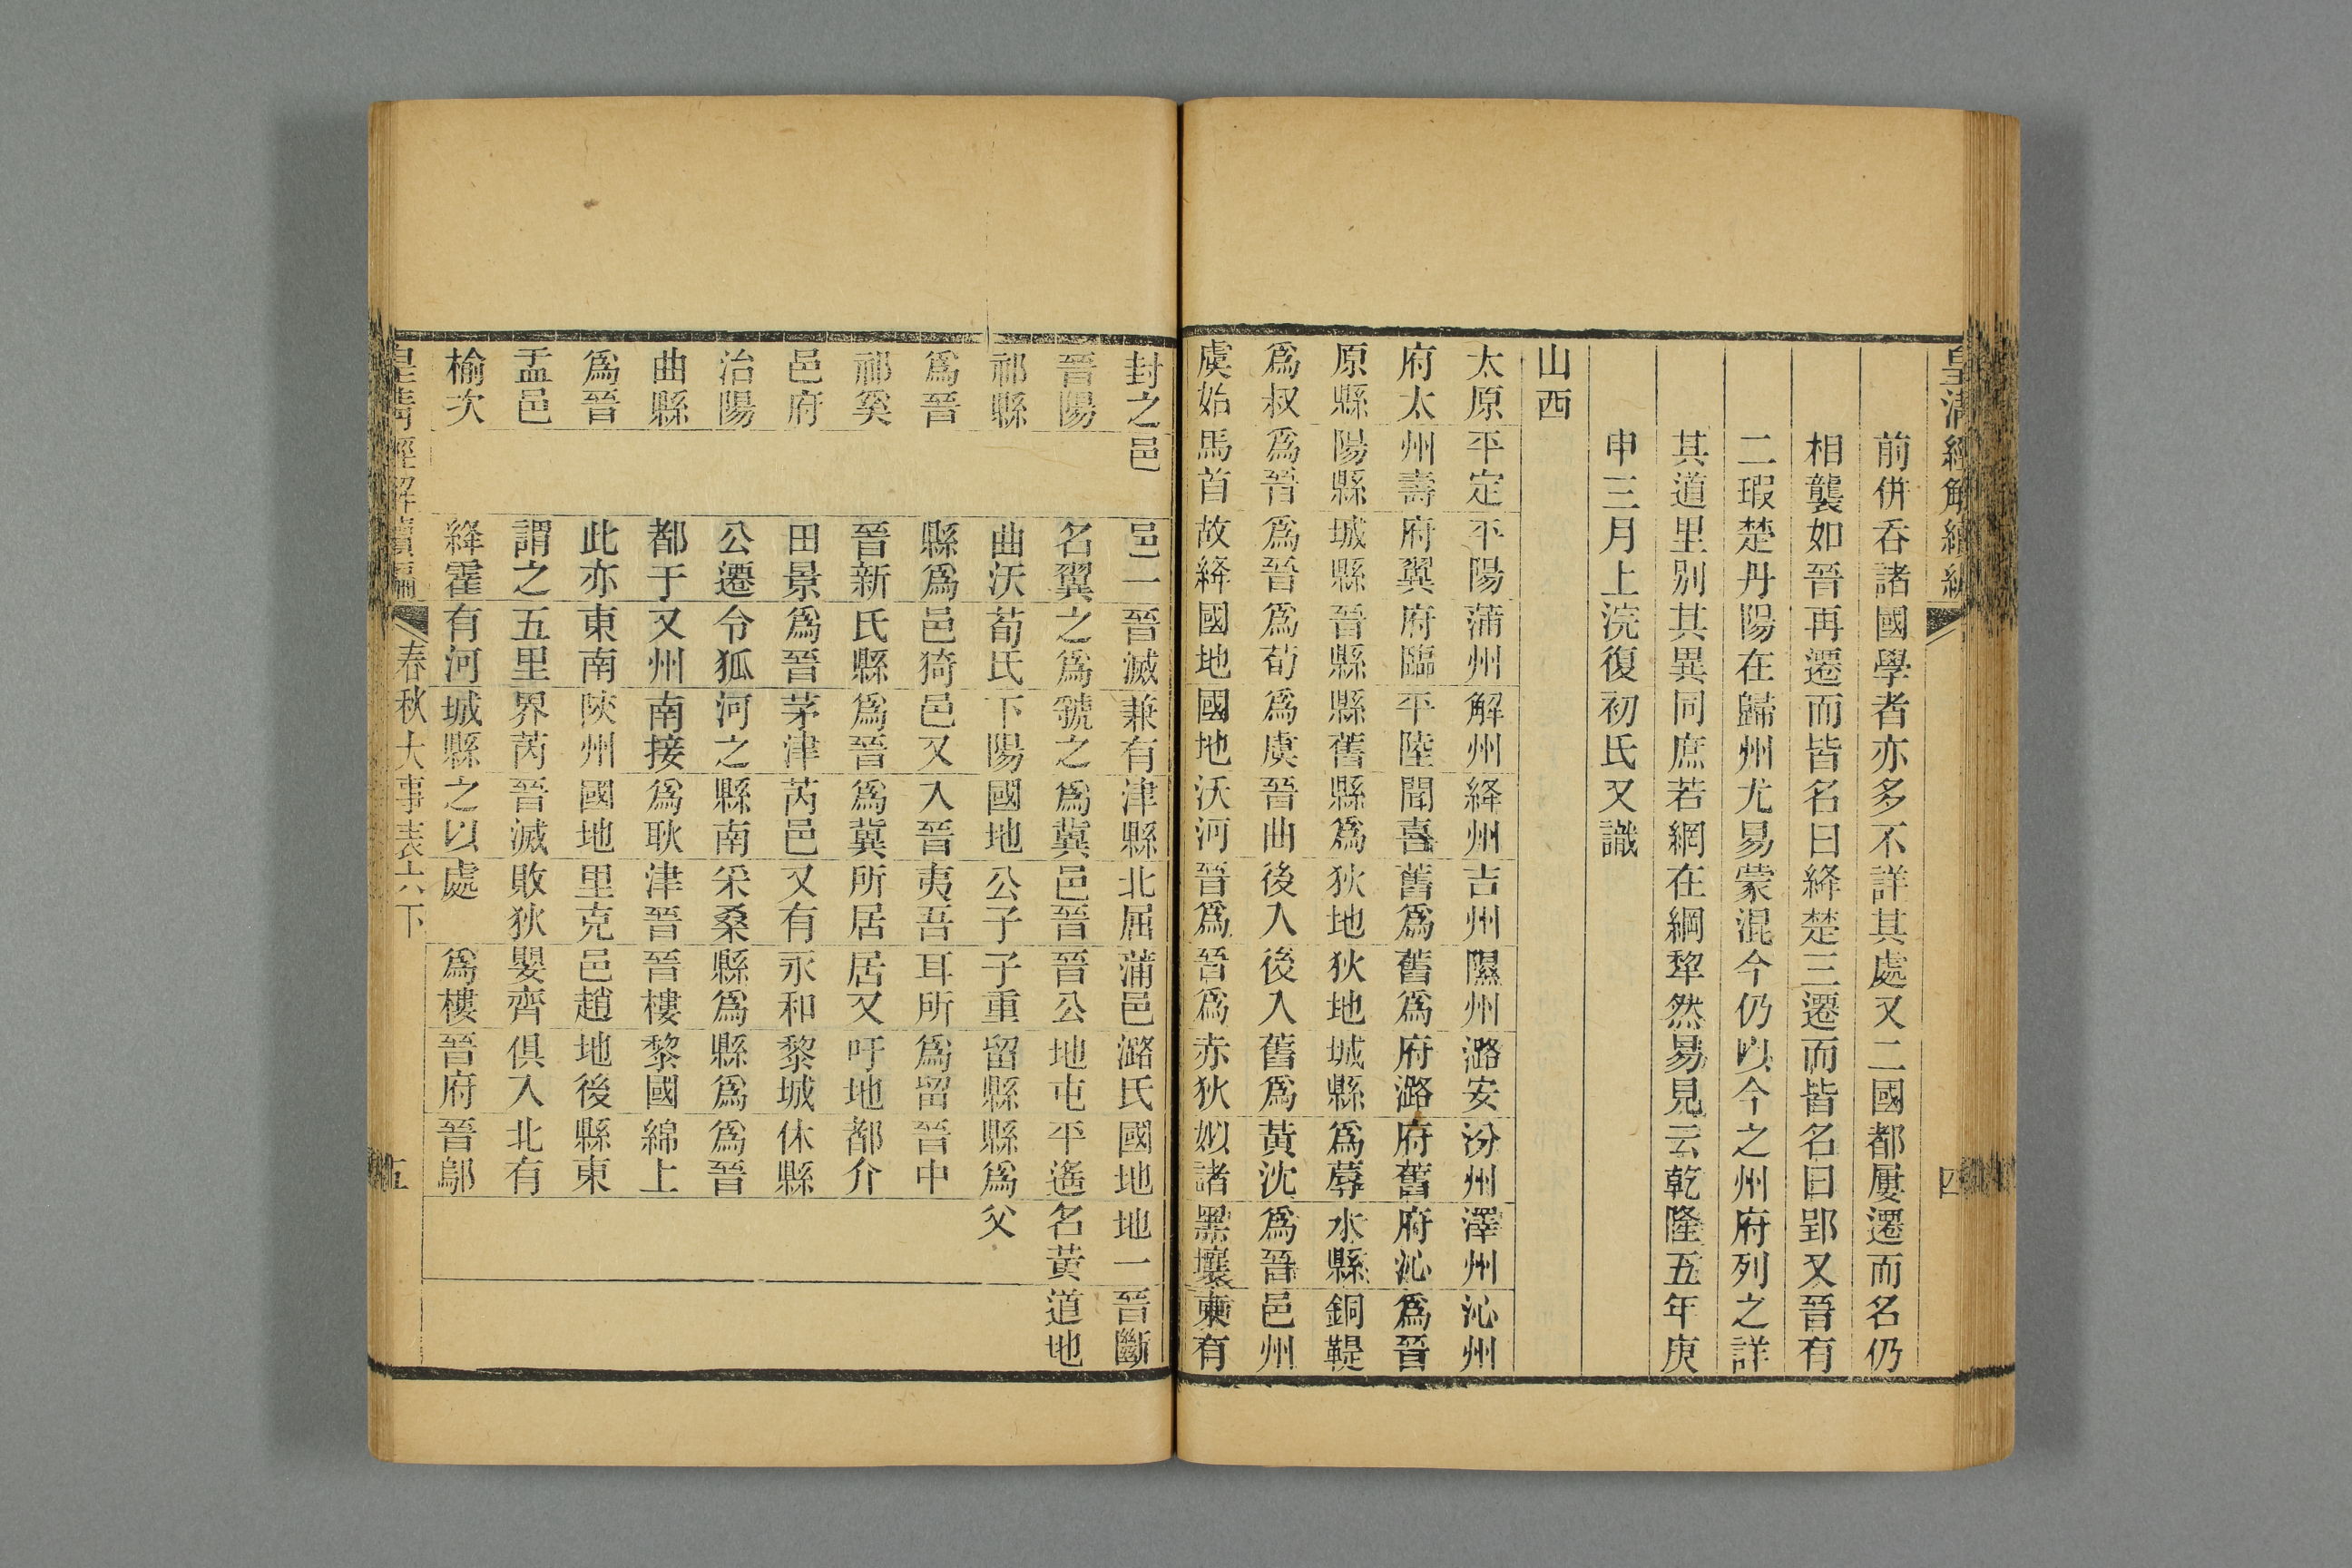 皇清經解續編
四
前併吞諸國學者亦多不詳其處又二國都屢遷而名仍
相襲如晉再遷而皆名曰絳楚三遷而皆名曰郢又晉有
二瑕楚丹陽在歸州尤易蒙混今仍以今之州府列之詳
其道里別其異同庶若網在綱犂然易見云乾隆五年庚
申三月上浣復初氏又識
山西
太原平定平陽蒲州解州絳州吉州隰州潞安汾州澤州沁州
府太州壽府翼府臨平陸聞喜舊爲舊爲府潞府舊府沁爲晉
原縣陽縣城縣晉縣縣舊縣爲狄地狄地城縣爲蓐水縣銅鞮
爲叔爲晉爲晉爲荀爲虞晉曲後入後入舊爲黃沈爲晉邑州
虞始馬首故絳國地國地沃河晉爲晉爲赤狄姒諸黑壤東有
封之邑邑一晉滅兼有津縣北屈蒲邑潞氏國地地一晉斷
晉陽名翼之爲虢之爲冀邑晉晉公地屯平遙名黃道地
祁縣曲沃荀氏下陽國地公子子重留縣縣爲父
爲晉縣爲邑猗邑又入晉夷吾耳所爲留晉中
祁奚晉新氏縣爲晉爲冀所居居又吁地都介
邑府田景爲晉茅津芮邑又有永和黎城休縣
治陽公遷令狐河之縣南采桑縣爲縣爲爲晉
曲縣都于又州南接爲耿津晉晉樓黎國綿上
爲晉此亦東南陝州國地里克邑趙地後縣東
盂邑謂之五里界芮晉滅敗狄嬰齊俱入北有
榆次絳霍有河城縣之以處爲樓晉府晉鄔
皇清經解續編
春秋大事表六下
五